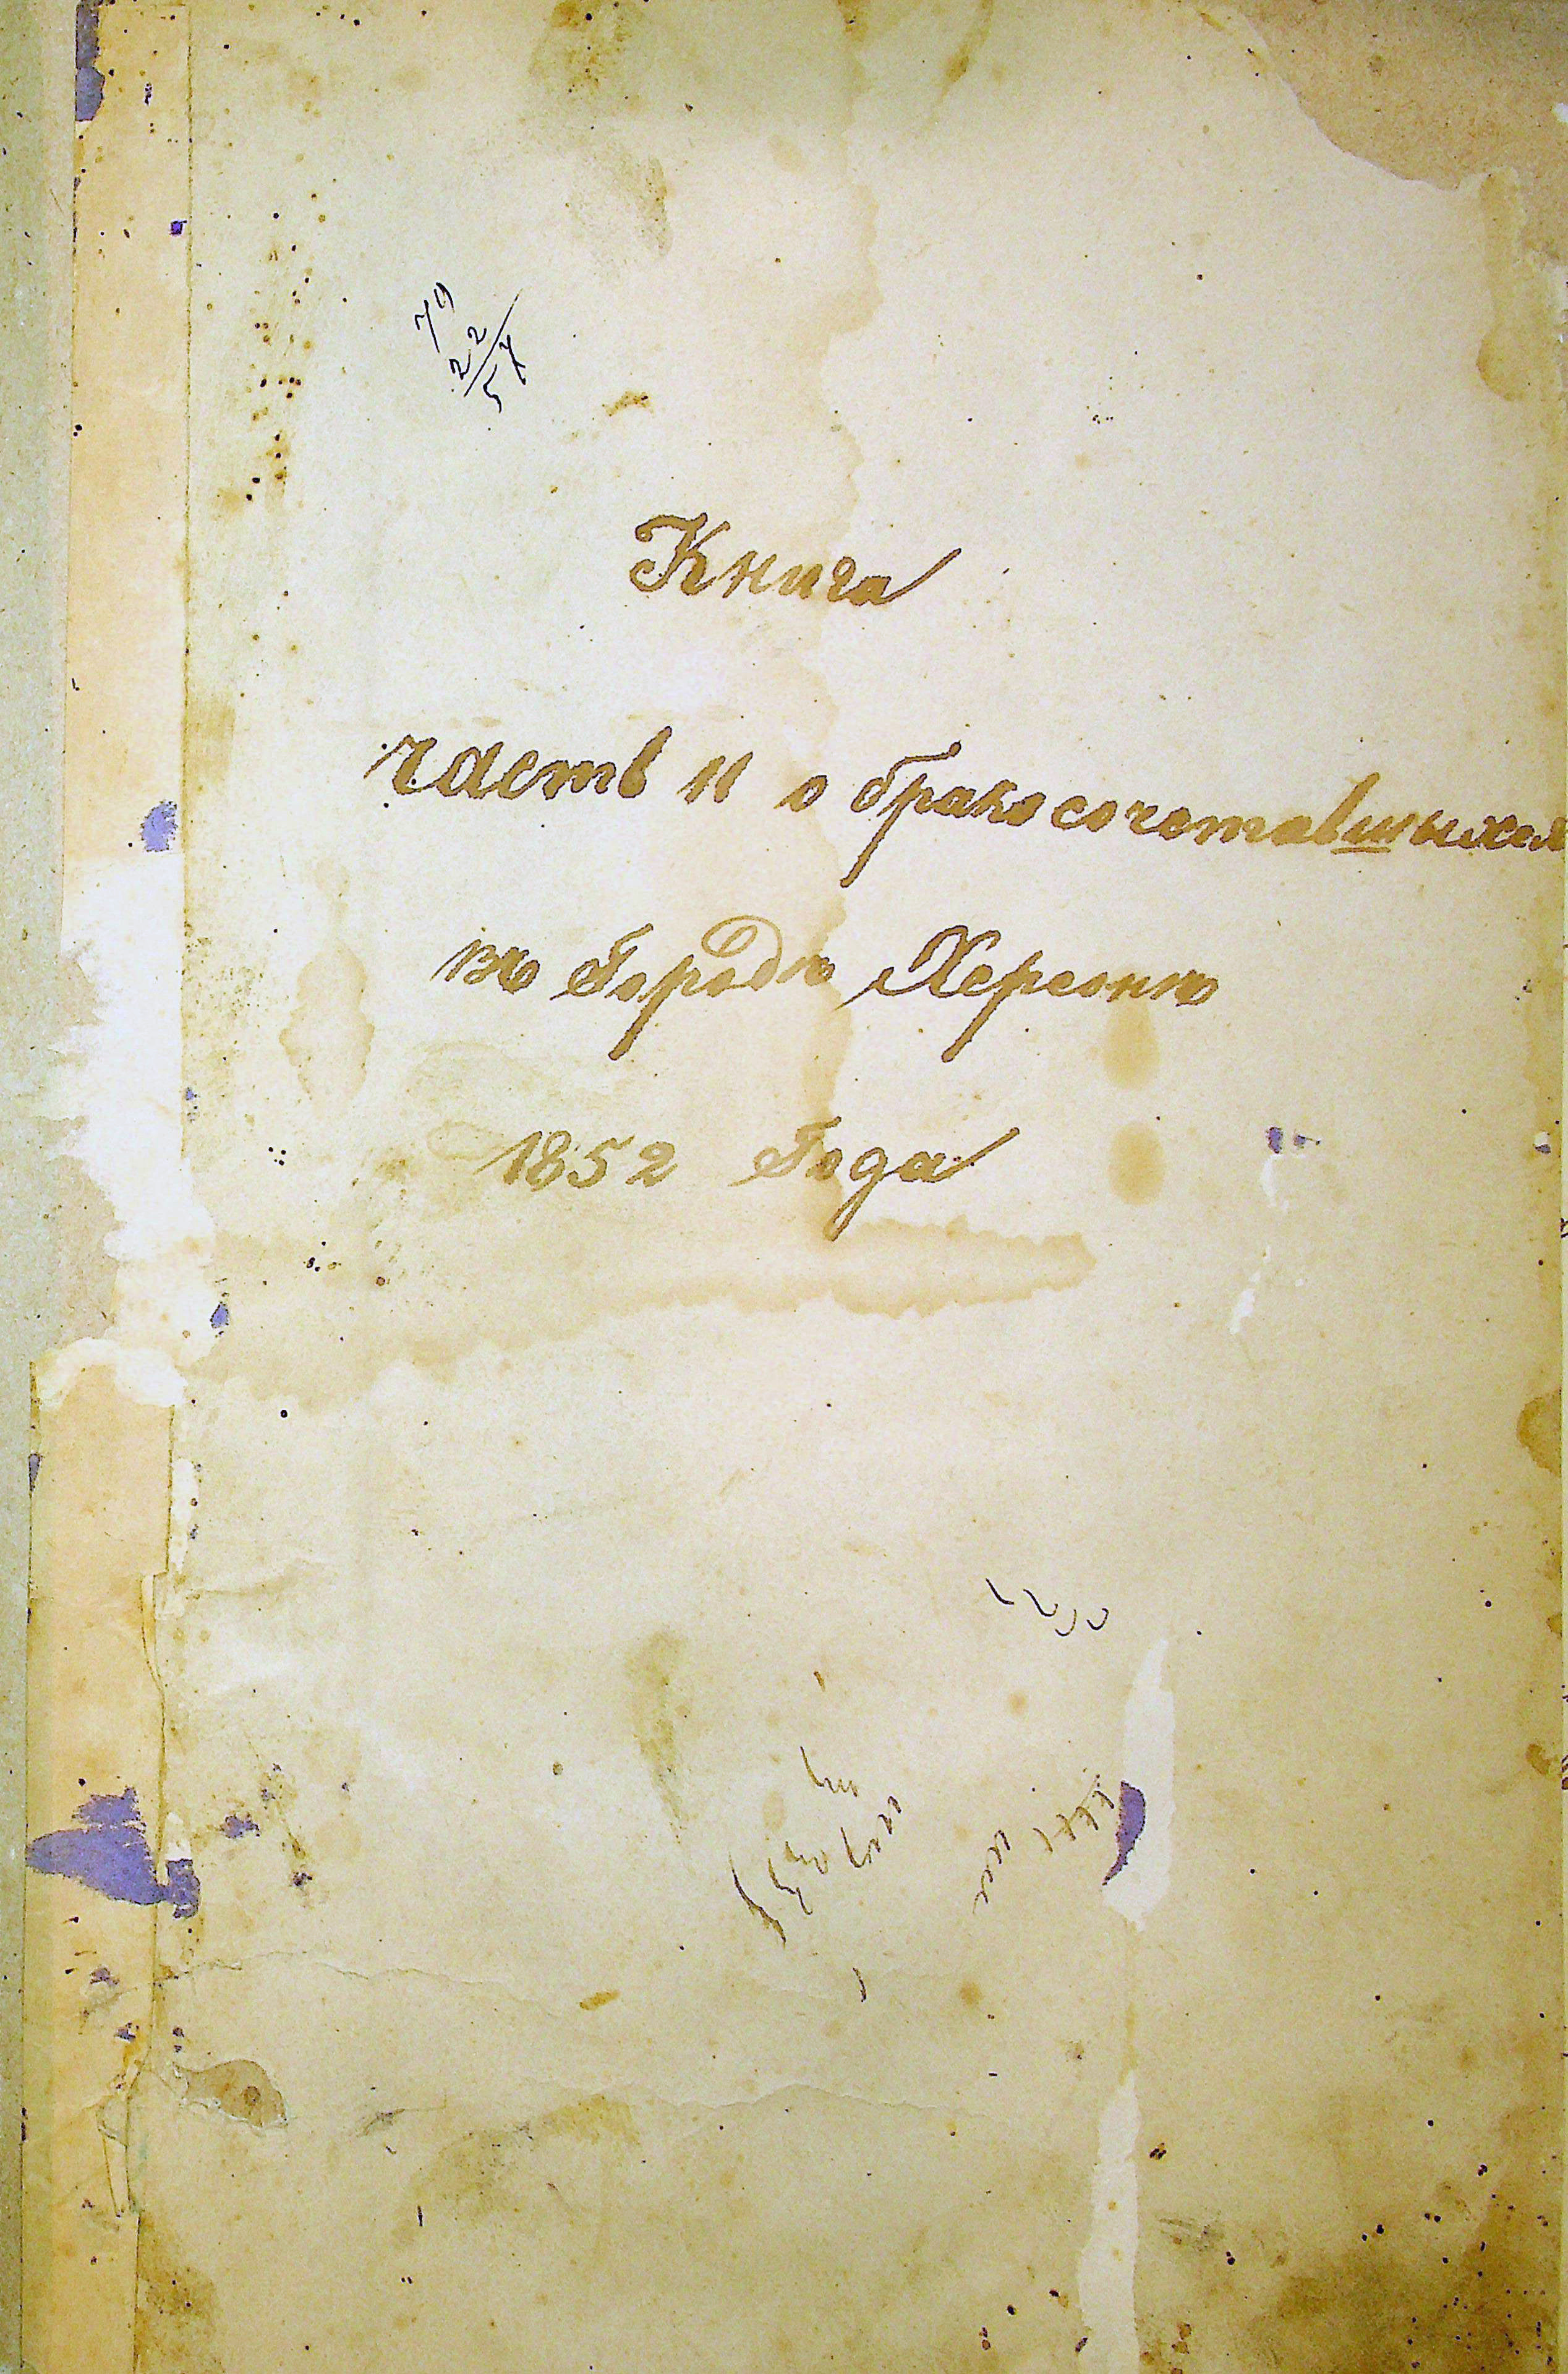 79
22
57
Книга
часть II о бракосочетавшыхся
въ Городѣ Херсонѣ
1852 Года